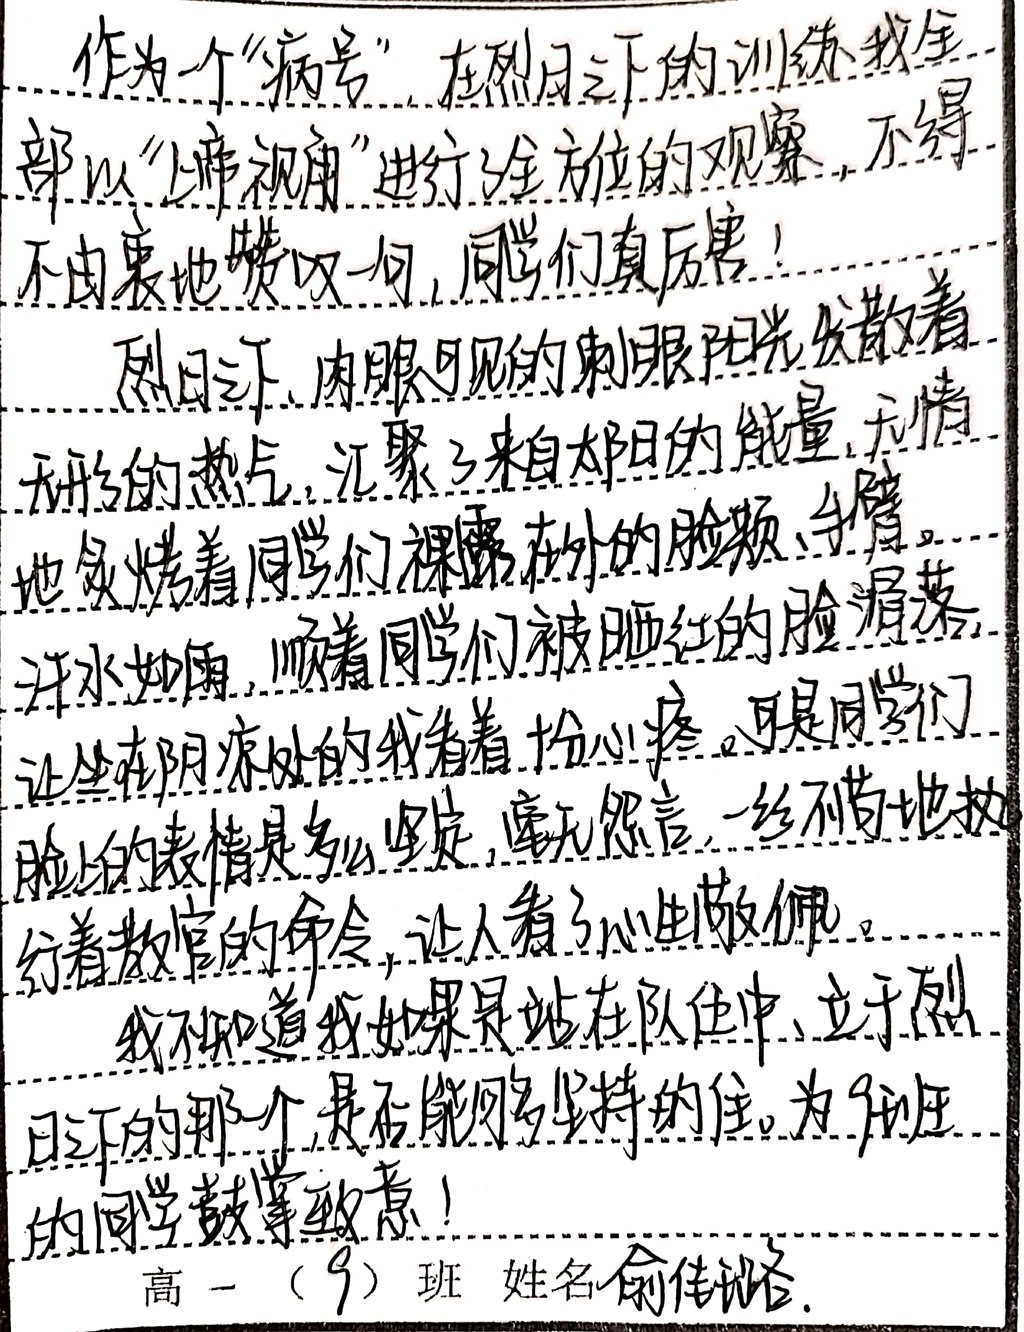 作为一个“病号”，在烈日之下的训练我全
部以“上帝视角”进行了全方位的观察，不得
不由衷地赞叹一句，同学们真厉害！
烈日之下、肉眼可见的刺眼阳光发散着
无形的热气，汇聚了来自太阳的能量，无情
地炙烤着同学们裸露在外的脸颊、手臂。
汗水如雨，顺着同学们被晒红的脸滑落，
让坐在阴凉处的我看着十分心疼。可是同学们
脸上的表情是多么坚定，毫无怨言，一丝不苟地执
行着教官的命令，让人看了心生敬佩。
我不知道我如果是站在队伍中、立于烈
日之下的那一个，是否能够坚持的住。为9班
的同学鼓掌致意！
高一（9）班 姓名 俞佳璐.